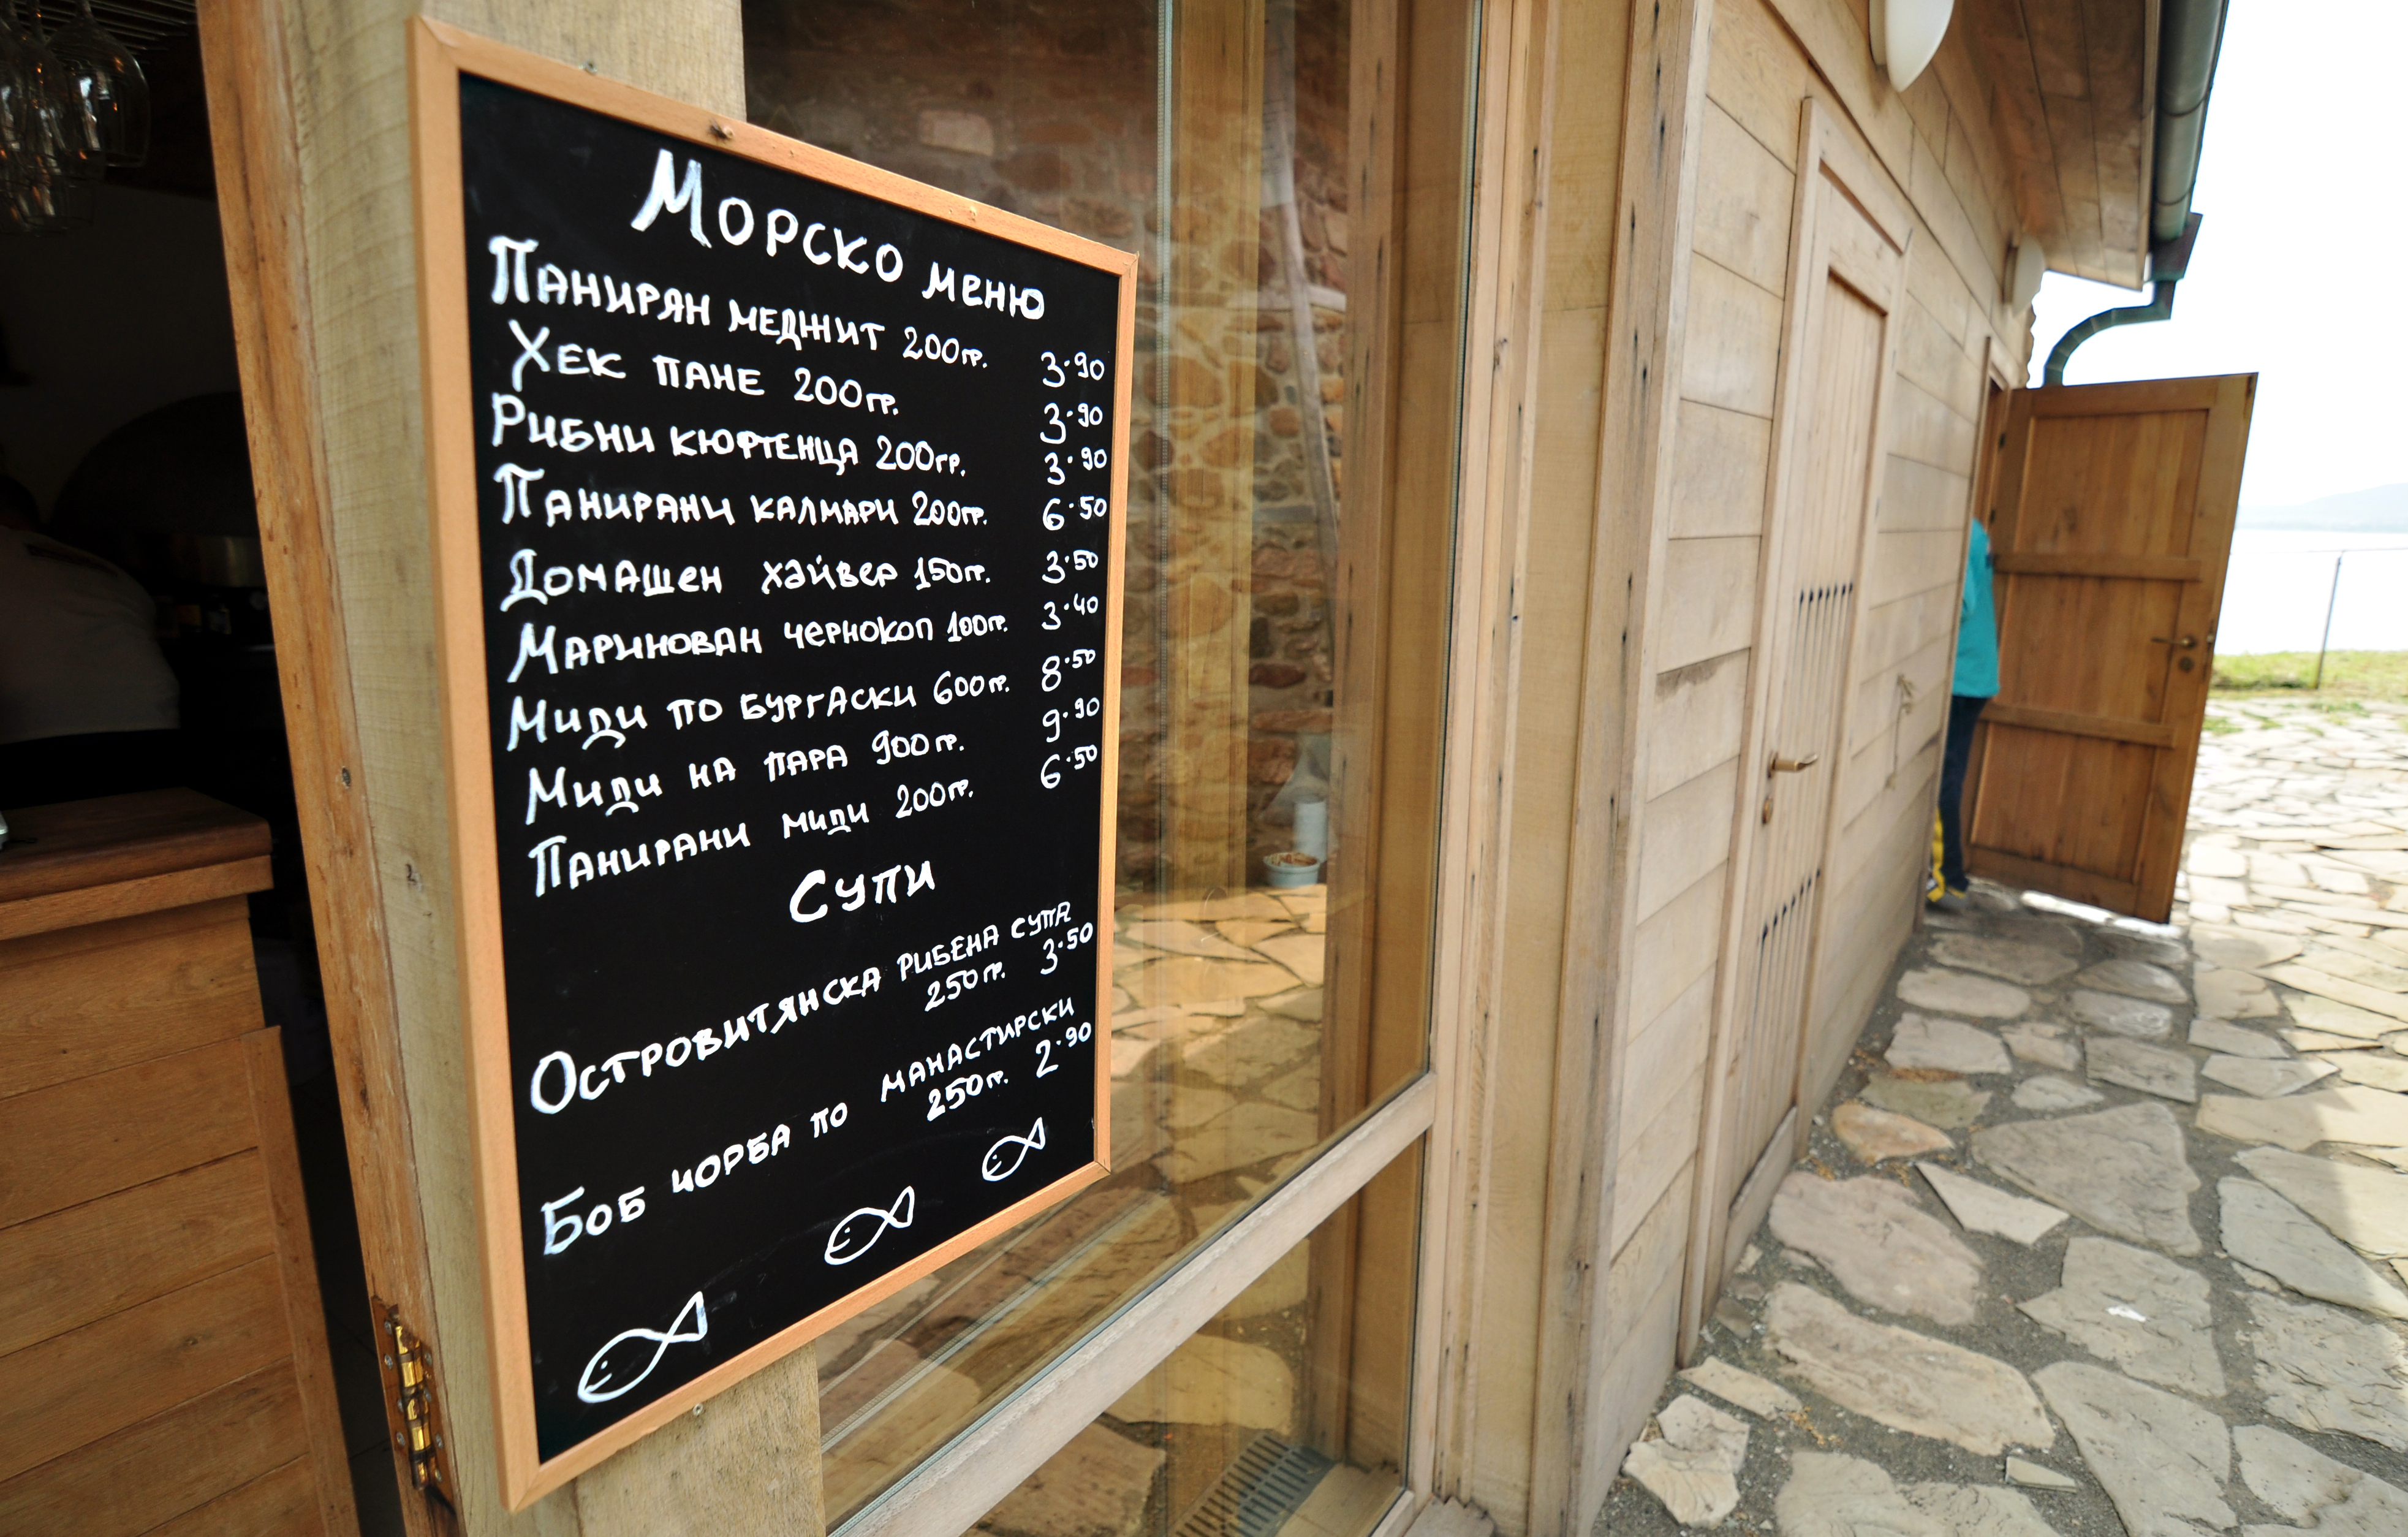 Морско меню
Панирян меджит 200гр. 3.90
Хек пане 200гр. 3.90
Рибни кюфтенца 200гр. 3.90
Панирани калмари 200гр. 6.50
Домашен хайвер 150гр. 3.50
Маринован чернокоп 100гр. 3.40
Миди по бургаски 600гр. 8.50
Миди на пара 900гр. 9.90
Панирани миди 200гр. 6.50
Супи
Островитянска рибена супа
250гр. 3.50
Боб чорба по манастирски
250гр. 2.90